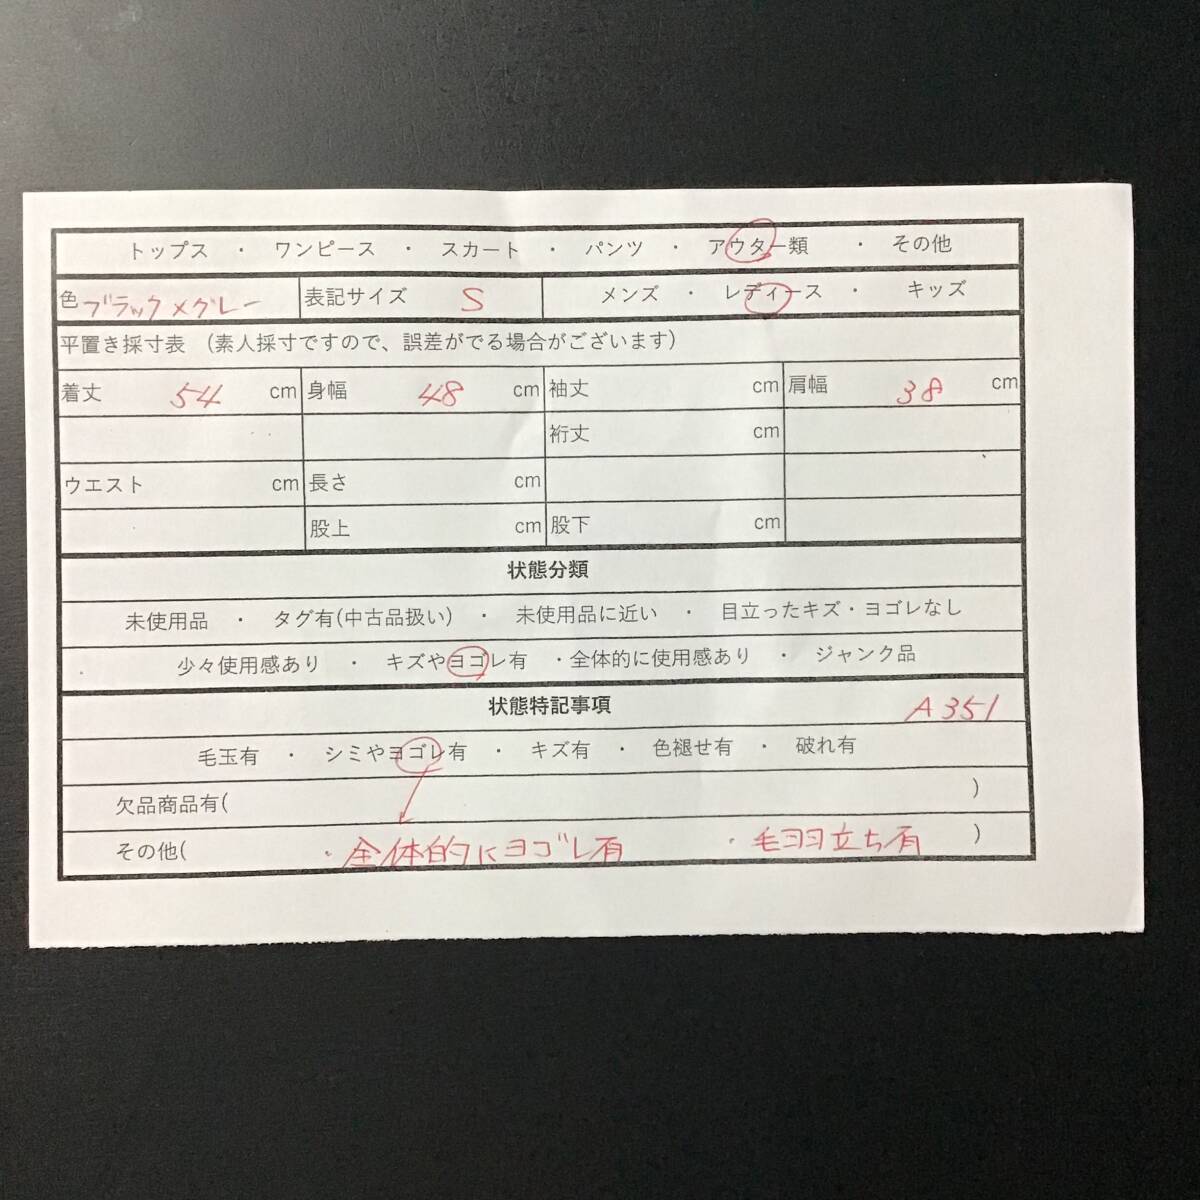 トップス ・ ワンピース ・ スカート ・ パンツ ・ アウター類 ・ その他
色 ブラック×グレー 表記サイズ S メンズ ・ レディース ・ キッズ
平置き採寸表 (素人採寸ですので、誤差がでる場合がございます)
着丈 54 cm 身幅 48 cm 袖丈 cm 肩幅 38 cm
裄丈 cm
ウエスト cm 長さ cm
股上 cm 股下 cm
状態分類
未使用品 ・ タグ有(中古品扱い) ・ 未使用品に近い ・ 目立ったキズ・ヨゴレなし
少々使用感あり ・ キズやヨゴレ有 ・全体的に使用感あり ・ ジャンク品
状態特記事項 A351
毛玉有 ・ シミやヨゴレ有 ・ キズ有 ・ 色褪せ有 ・ 破れ有
欠品商品有( )
その他( ・全体的にヨゴレ有 ・毛羽立ち有 )